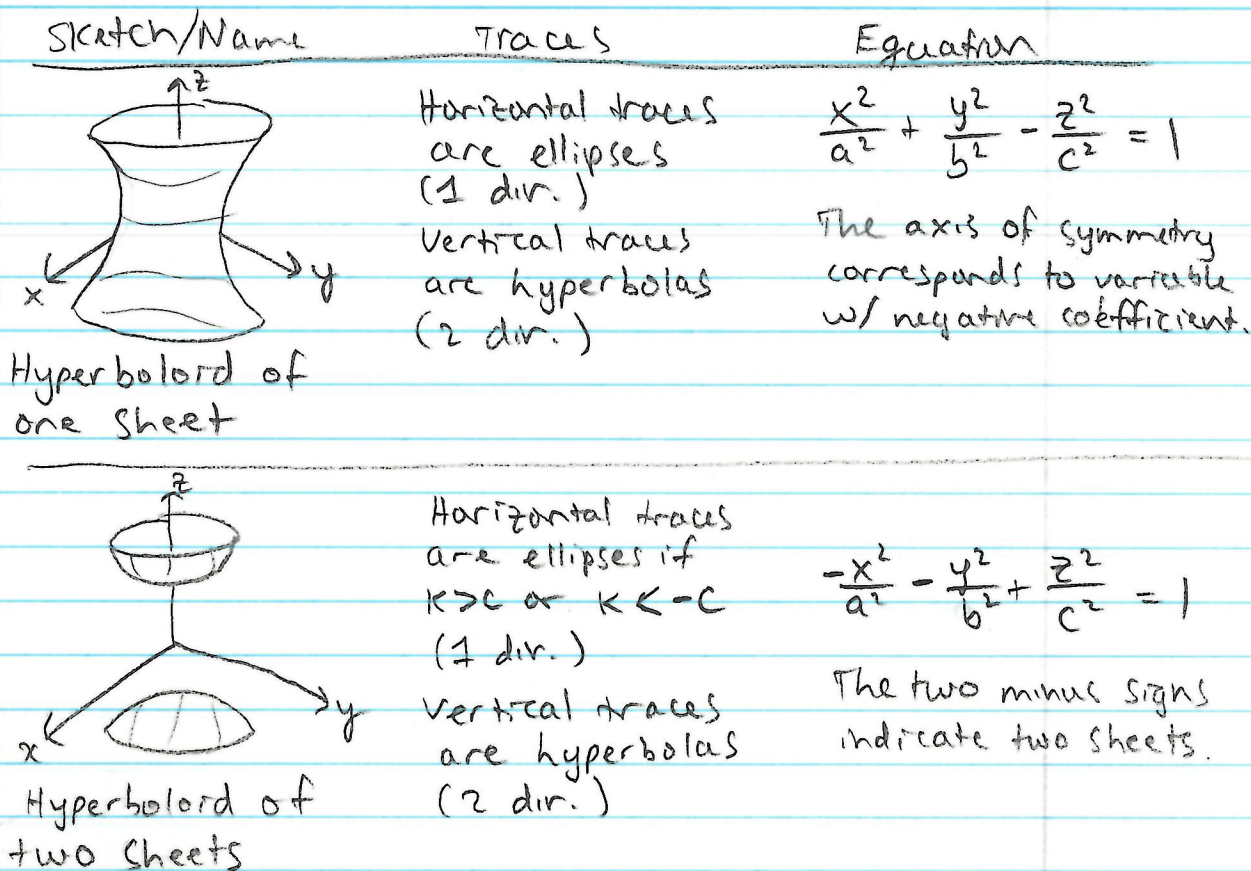 Sketch/Name Traces Equation
z
x
y
Hyperboloid of
one sheet
Horizontal traces
are ellipses
(1 dir.)
Vertical traces
are hyperbolas
(2 dir.)
x²/a² + y²/b² - z²/c² = 1
The axis of symmetry
corresponds to variable
w/ negative coefficient.
z
x
y
Hyperboloid of
two sheets
Horizontal traces
are ellipses if
k>c or k<-c
(1 dir.)
Vertical traces
are hyperbolas
(2 dir.)
-x²/a² - y²/b² + z²/c² = 1
The two minus signs
indicate two sheets.